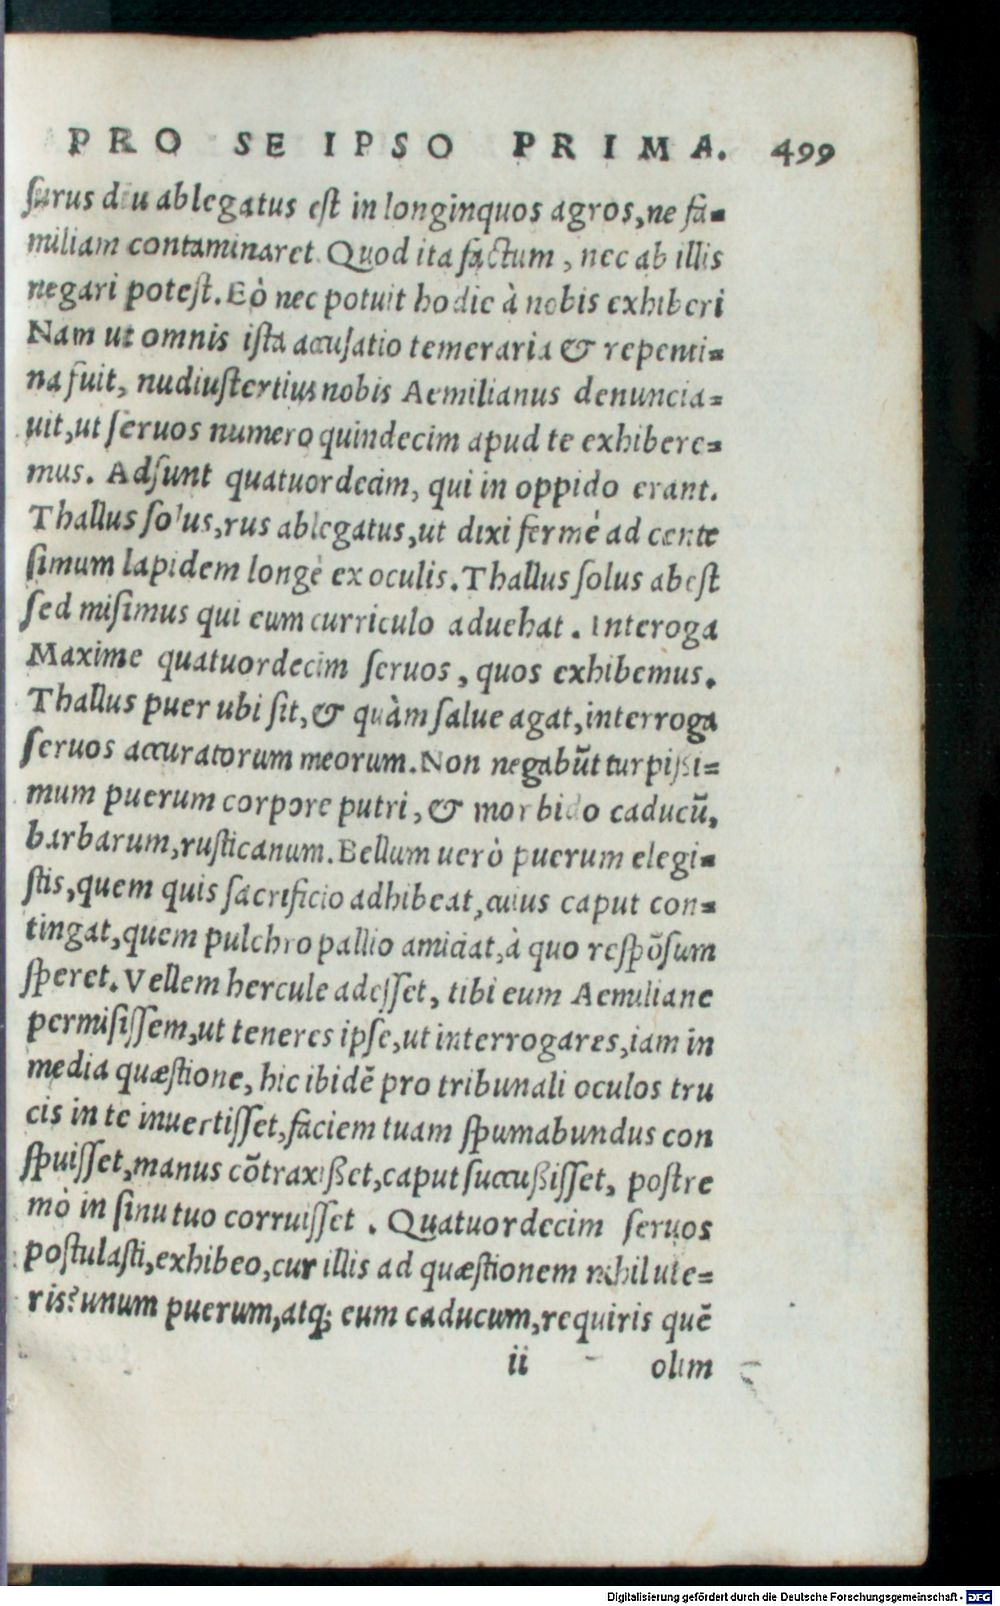 PRO SE IPSO PRIMA. 499
surus diu ablegatus est in longinquos agros, ne fa=
miliam contaminaret. Quod ita factum, nec ab illis
negari potest. Eò nec potuit hodie à nobis exhiberi
Nam ut omnis ista accusatio temeraria & repenti=
na fuit, nudiustertius nobis Aemilianus denuncia=
uit, ut seruos numero quindecim apud te exhibere=
mus. Adsunt quatuordecim, qui in oppido erant.
Thallus solus, rus ablegatus, ut dixi fermè ad cente
simum lapidem longè ex oculis. Thallus solus abest
sed misimus qui eum curriculo aduehat. Interoga
Maxime quatuordecim seruos, quos exhibemus.
Thallus puer ubi sit, & quàm salue agat, interroga
seruos accuratorum meorum. Non negabũt turpißi=
mum puerum corpore putri, & morbido caducũ,
barbarum, rusticanum. Bellum uerò puerum elegi=
stis, quem quis sacrificio adhibeat, cuius caput con=
tingat, quem pulchro pallio amiciat, à quo respõsum
speret. Vellem hercule adesset, tibi eum Aemiliane
permisissem, ut teneres ipse, ut interrogares, iam in
media quæstione, hic ibidẽ pro tribunali oculos tru
cis in te inuertisset, faciem tuam spumabundus con
spuisset, manus cõtraxißet, caput succußisset, postre
mò in sinu tuo corruisset. Quatuordecim seruos
postulasti, exhibeo, cur illis ad quæstionem nihil ute=
ris? unum puerum, atq; eum caducum, requiris quẽ
ii olim
Digitalisierung gefördert durch die Deutsche Forschungsgemeinschaft - DFG